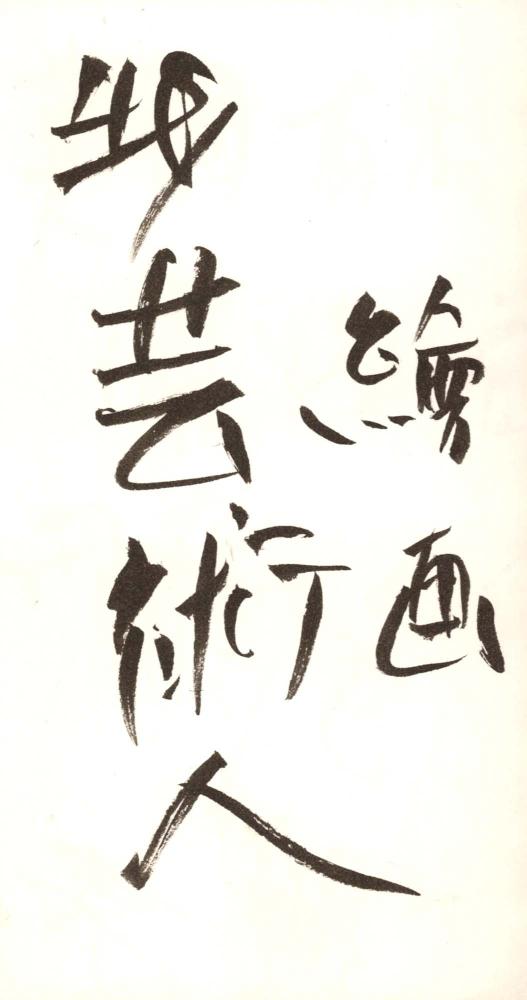 繪画
芸術人